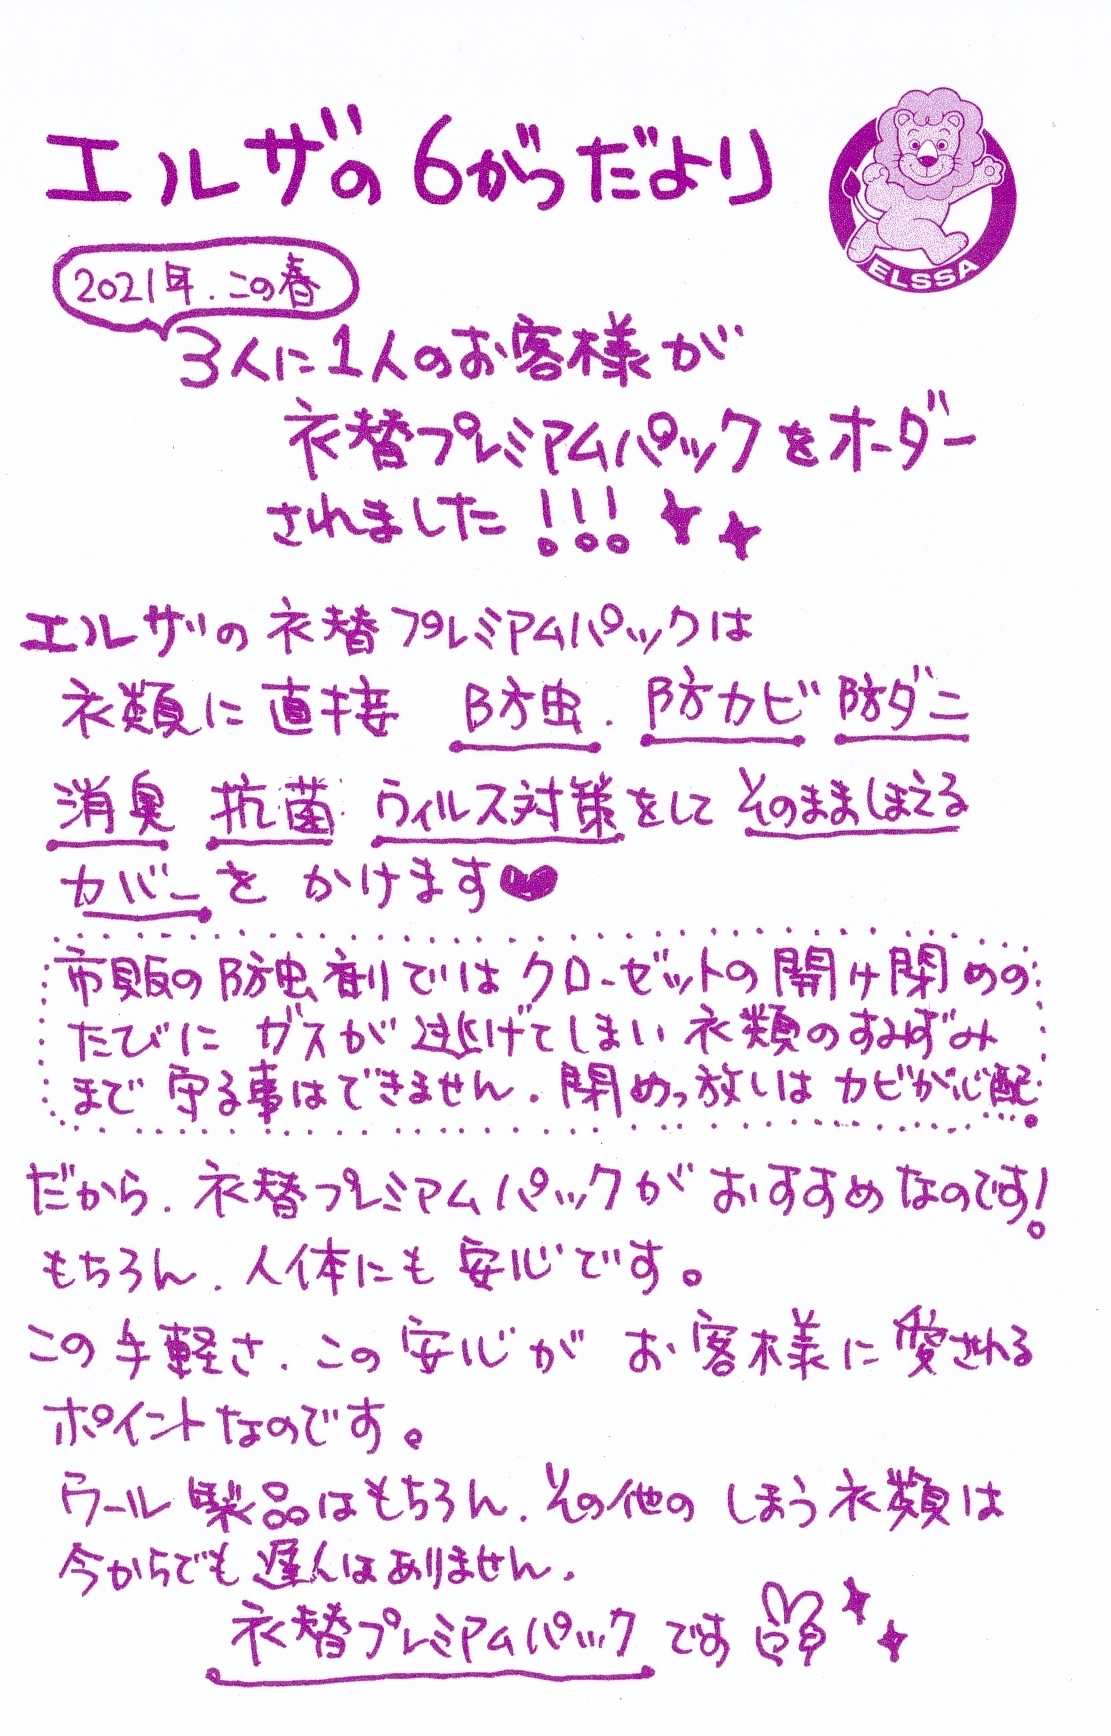 エルザの6がつだより
ELSSA
2021年.この春
3人に1人のお客様が
衣替プレミアムパックをオーダー
されました!!!
エルザの衣替プレミアムパックは
衣類に直接 防虫.防カビ 防ダニ
消臭 抗菌 ウィルス対策をして そのまましまえる
カバーを かけます
市販の防虫剤ではクローゼットの開け閉めの
たびに ガスが逃げてしまい衣類のすみずみ
まで守る事はできません.閉めっ放しはカビが心配…
だから.衣替プレミアムパックがおすすめなのです!
もちろん.人体にも安心です。
この手軽さ.この安心がお客様に愛される
ポイントなのです。
ウール製品はもちろん.その他のしまう衣類は
今からでも遅くはありません.
衣替プレミアムパックです